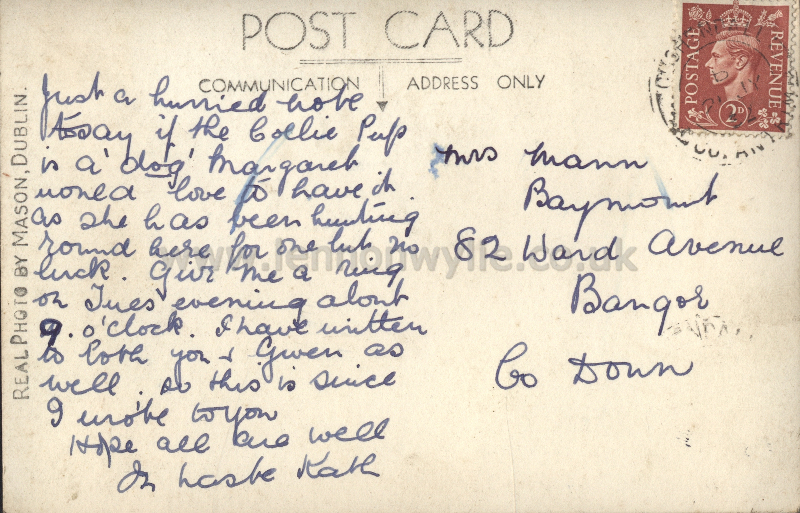 POST CARD
COMMUNICATION ADDRESS ONLY
REAL PHOTO BY MASON, DUBLIN.
Just a hurried note
to say if the Collie Pup
is a 'dog' Margaret
would love to have it.
as she has been hunting
round here for one but no
luck. Give me a ring
on Tues' evening about
9. o'clock. I have written
to both you & Gwen as
well. so this is since
I wrote to you
Hope all are well
In haste Kath
Mrs Mann
Baymount
82 Ward Avenue
Bangor
Co Down
POSTAGE REVENUE
2D
CO. ANTRIM
www.lennonwylie.co.uk